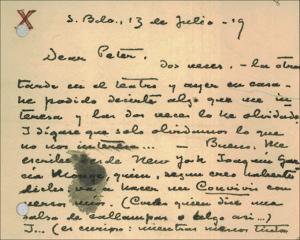 X
S. Belo., 13 de Julio - 19
Dear Peter.
Dos veces, - la otra
tarde en el teatro y ayer en casa -
he podido decirte algo que me in-
teresa y las dos veces lo he olvidado.
I dígase que solo olvidamos lo que
no nos interesa ... — Bueno: Me
escribe desde New York Joaquín Gar-
cía Monge, quien,
va a hacer un Convivio con
versos míos. (Como quien dice una
salsa de callampas o algo así...)
I... (es cuerpo: mientras menos